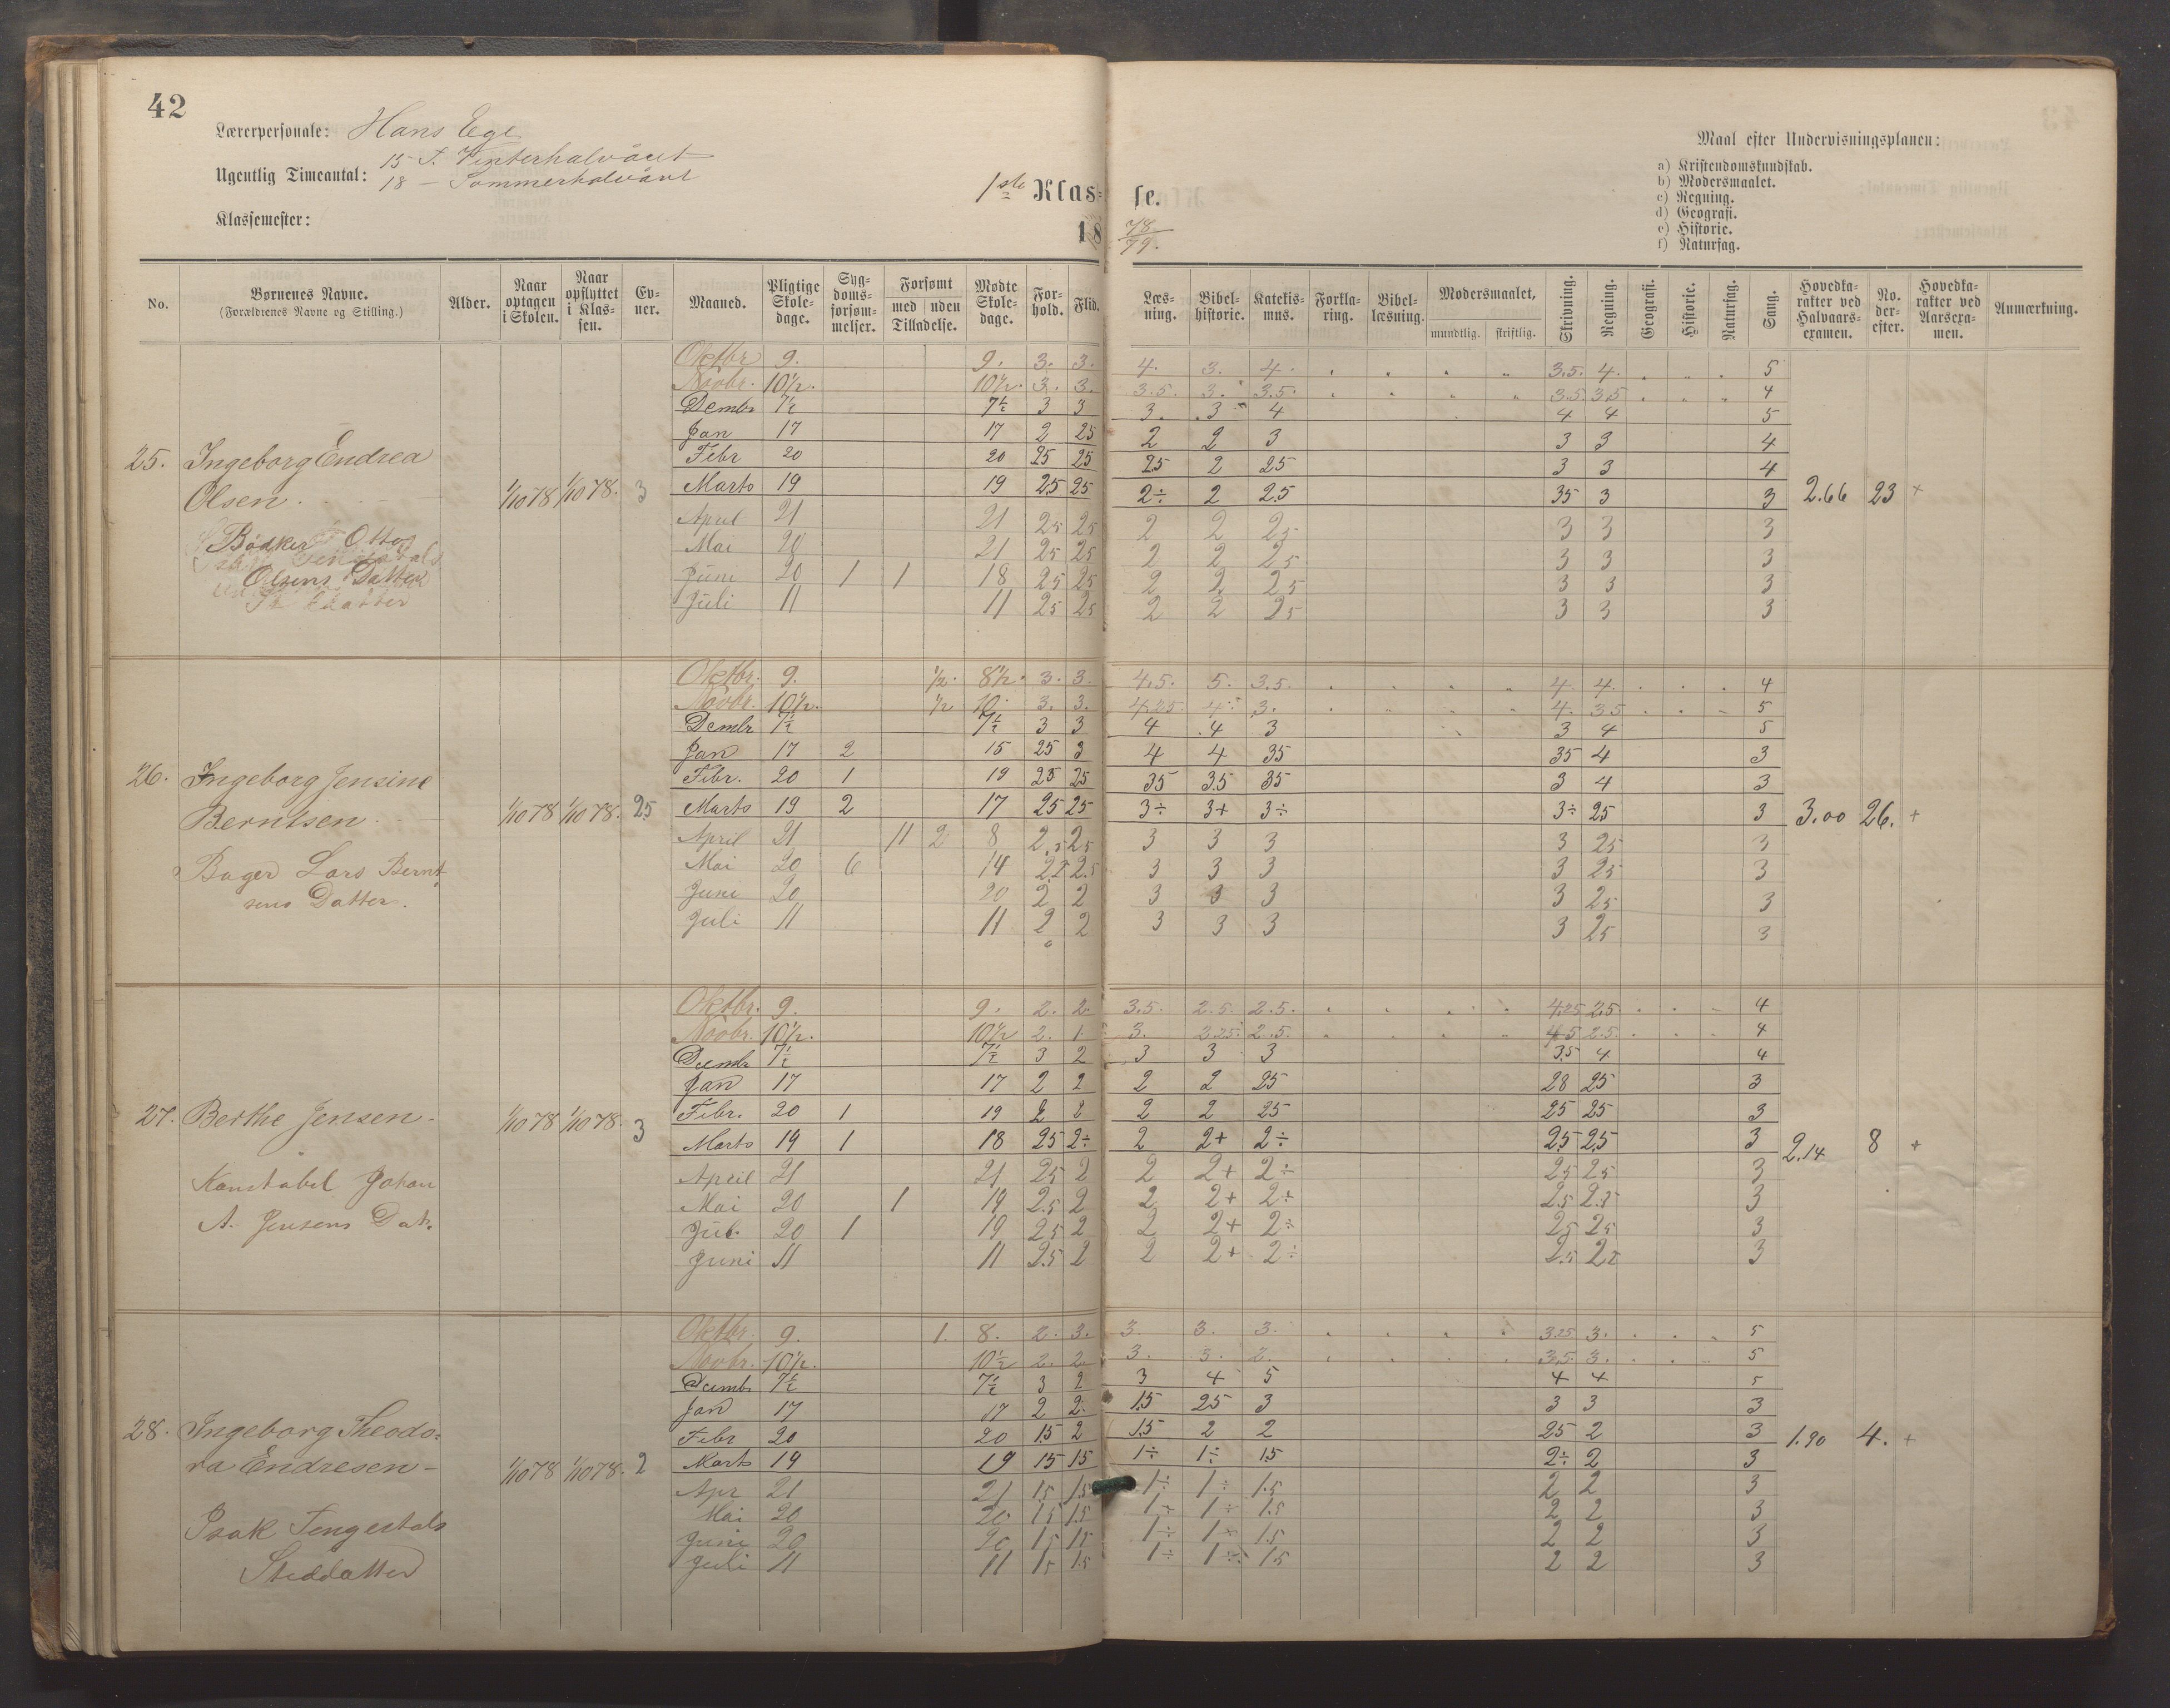 42
Lærerpersonale: Hans Ege
Ugentlig Timeantal: 15 T. Vinterhalvåret
18 — Sommerhalvåret
Klassemester:
1ste Klasse.
18 78/79.
Maal efter Undervisningsplanen:
a) Kristendomskundskab.
b) Modersmaalet.
c) Regning.
d) Geografi.
e) Historie.
f) Naturfag.
No. Børnenes Navne. (Forældrenes Navne og Stilling.) Alder. Naar optagen i Skolen. Naar opflyttet i Klassen. Evner. Maaned. Pligtige Skoledage. Sygdomsforsømmelser. Forsømt med uden Tilladelse. Mødte Skoledage. Forhold. Flid. Læsning. Bibelhistorie. Katekismus. Forklaring. Bibellæsning. Modersmaalet, mundtlig. skriftlig. Skrivning. Regning. Geografi. Historie. Naturfag. Sang. Hovedkarakter ved Halvaarsexamen. No. derefter. Hovedkarakter ved Aarsexamen. Anmærkning.
Oktbr 9. 9. 3. 3. 4. 3. 4. 3.5. 4. 5
Novbr. 10½. 10½. 3. 3. 3.5. 3. 3.5. 3.5 3.5 4
Dembr 7½ 7½ 3 3 3. 3 4 4 4 5
Jan 17 17 2 25 2 2 3 3 3 4
Febr 20 20 25 25 25 2 25 3 3 4
25. Ingeborg Endrea
Olsen.
1/10 78 1/10 78. 3 Marts 19 19 25 25 2÷ 2 2.5 35 3 3 2.66 23 +
April 21 21 25 25 2 2 25 3 3 3
Bødker Otto
Mai 20 21 25 25 2 2 25 3 3 3
Olsens Datter
Juni 20 1 1 18 25 25 2 2 25 3 3 3
Juli 11 11 25 25 2 2 25 3 3 3
Oktbr. 9. ½. 8½. 3. 3. 4.5. 5. 3.5. 4. 4. 4
Novbr. 10½. ½ 10. 3. 3. 4.25. 4. 3. 4. 35 5
Dembr 7½ 7½ 3 3 4 4 3 3 4 5
Jan 17 2 15 25 3 4 4 35 35 4 3
26. Ingeborg Jensine
Febr. 20 1 19 25 25 35 35 35 3 4 3
Berntsen
1/10 78 1/10 78. 25 Marts 19 2 17 25 25 3÷ 3+ 3÷ 3÷ 25 3 3.00 26. +
April 21 11 2 8 2.5 25 3 3 3 3 25 3
Bager Lars Bernt
Mai 20 6 14 2.5 2.5 3 3 3 3 25 3
sens Datter.
Juni 20 20 2 2 3 3 3 3 25 3
Juli 11 11 2 2 3 3 3 3 25 3
Oktbr. 9. 9. 2. 2. 3.5. 2.5. 2.5. 4.25 2.5. 4
Novbr. 10½. 10½ 2. 1. 3. 2.25. 2.5. 4.5 2.5. 4
Decmbr 7½ 7½ 3 2 3 3 3 3.5 4 4
Jan 17 17 2 2 2 2 25 28 25 3
27. Berthe Jensen
1/10 78 1/10 78. 3 Febr. 20 1 19 2 2 2 2 25 25 25 3
Marts 19 1 18 25 2÷ 2 2+ 2÷ 25 25 3 2.14 8 +
Konstabel Johan
April 21 21 25 2 2 2+ 2÷ 25 25 3
Mai 20 1 19 2.5 2 2 2+ 2÷ 2.5 2.5 3
A. Jensens Dat.
20 1 19 25 2 2 2+ 2÷ 25 25 3
Juni 11 11 2.5 2 2 2+ 2÷ 2.5 25 3
Oktbr. 9. 1. 8. 2. 3. 3. 3. 3. 3.25 3. 5
Novbr. 10½. 10½ 2. 2. 3. 3. 2. 3.5. 3. 5
Decmbr 7½ 7½ 3 2 3 4 5 4 4 5
Jan 17 17 2 2 1.5 25 3 3 3 3
28. Ingeborg Theodo=
Febr 20 20 15 2 1.5 2 2 25 2 3 1.90 4. +
ra Endresen
1/10 78 1/10 78. 2 Marts 19 19 15 15 1÷ 1÷ 15 2÷ 2 3
Apr 21 21 15 1.5 1÷ 1÷ 1.5 2 2 3
Isak Tengesdals
Mai 20 20 15 1.5 1÷ 1÷ 1.5 2 2 3
Juni 20 20 15 15 1÷ 1÷ 1.5 2 2 3
Steddatter
Juli 11 11 15 1.5 1÷ 1÷ 15 2 2 3